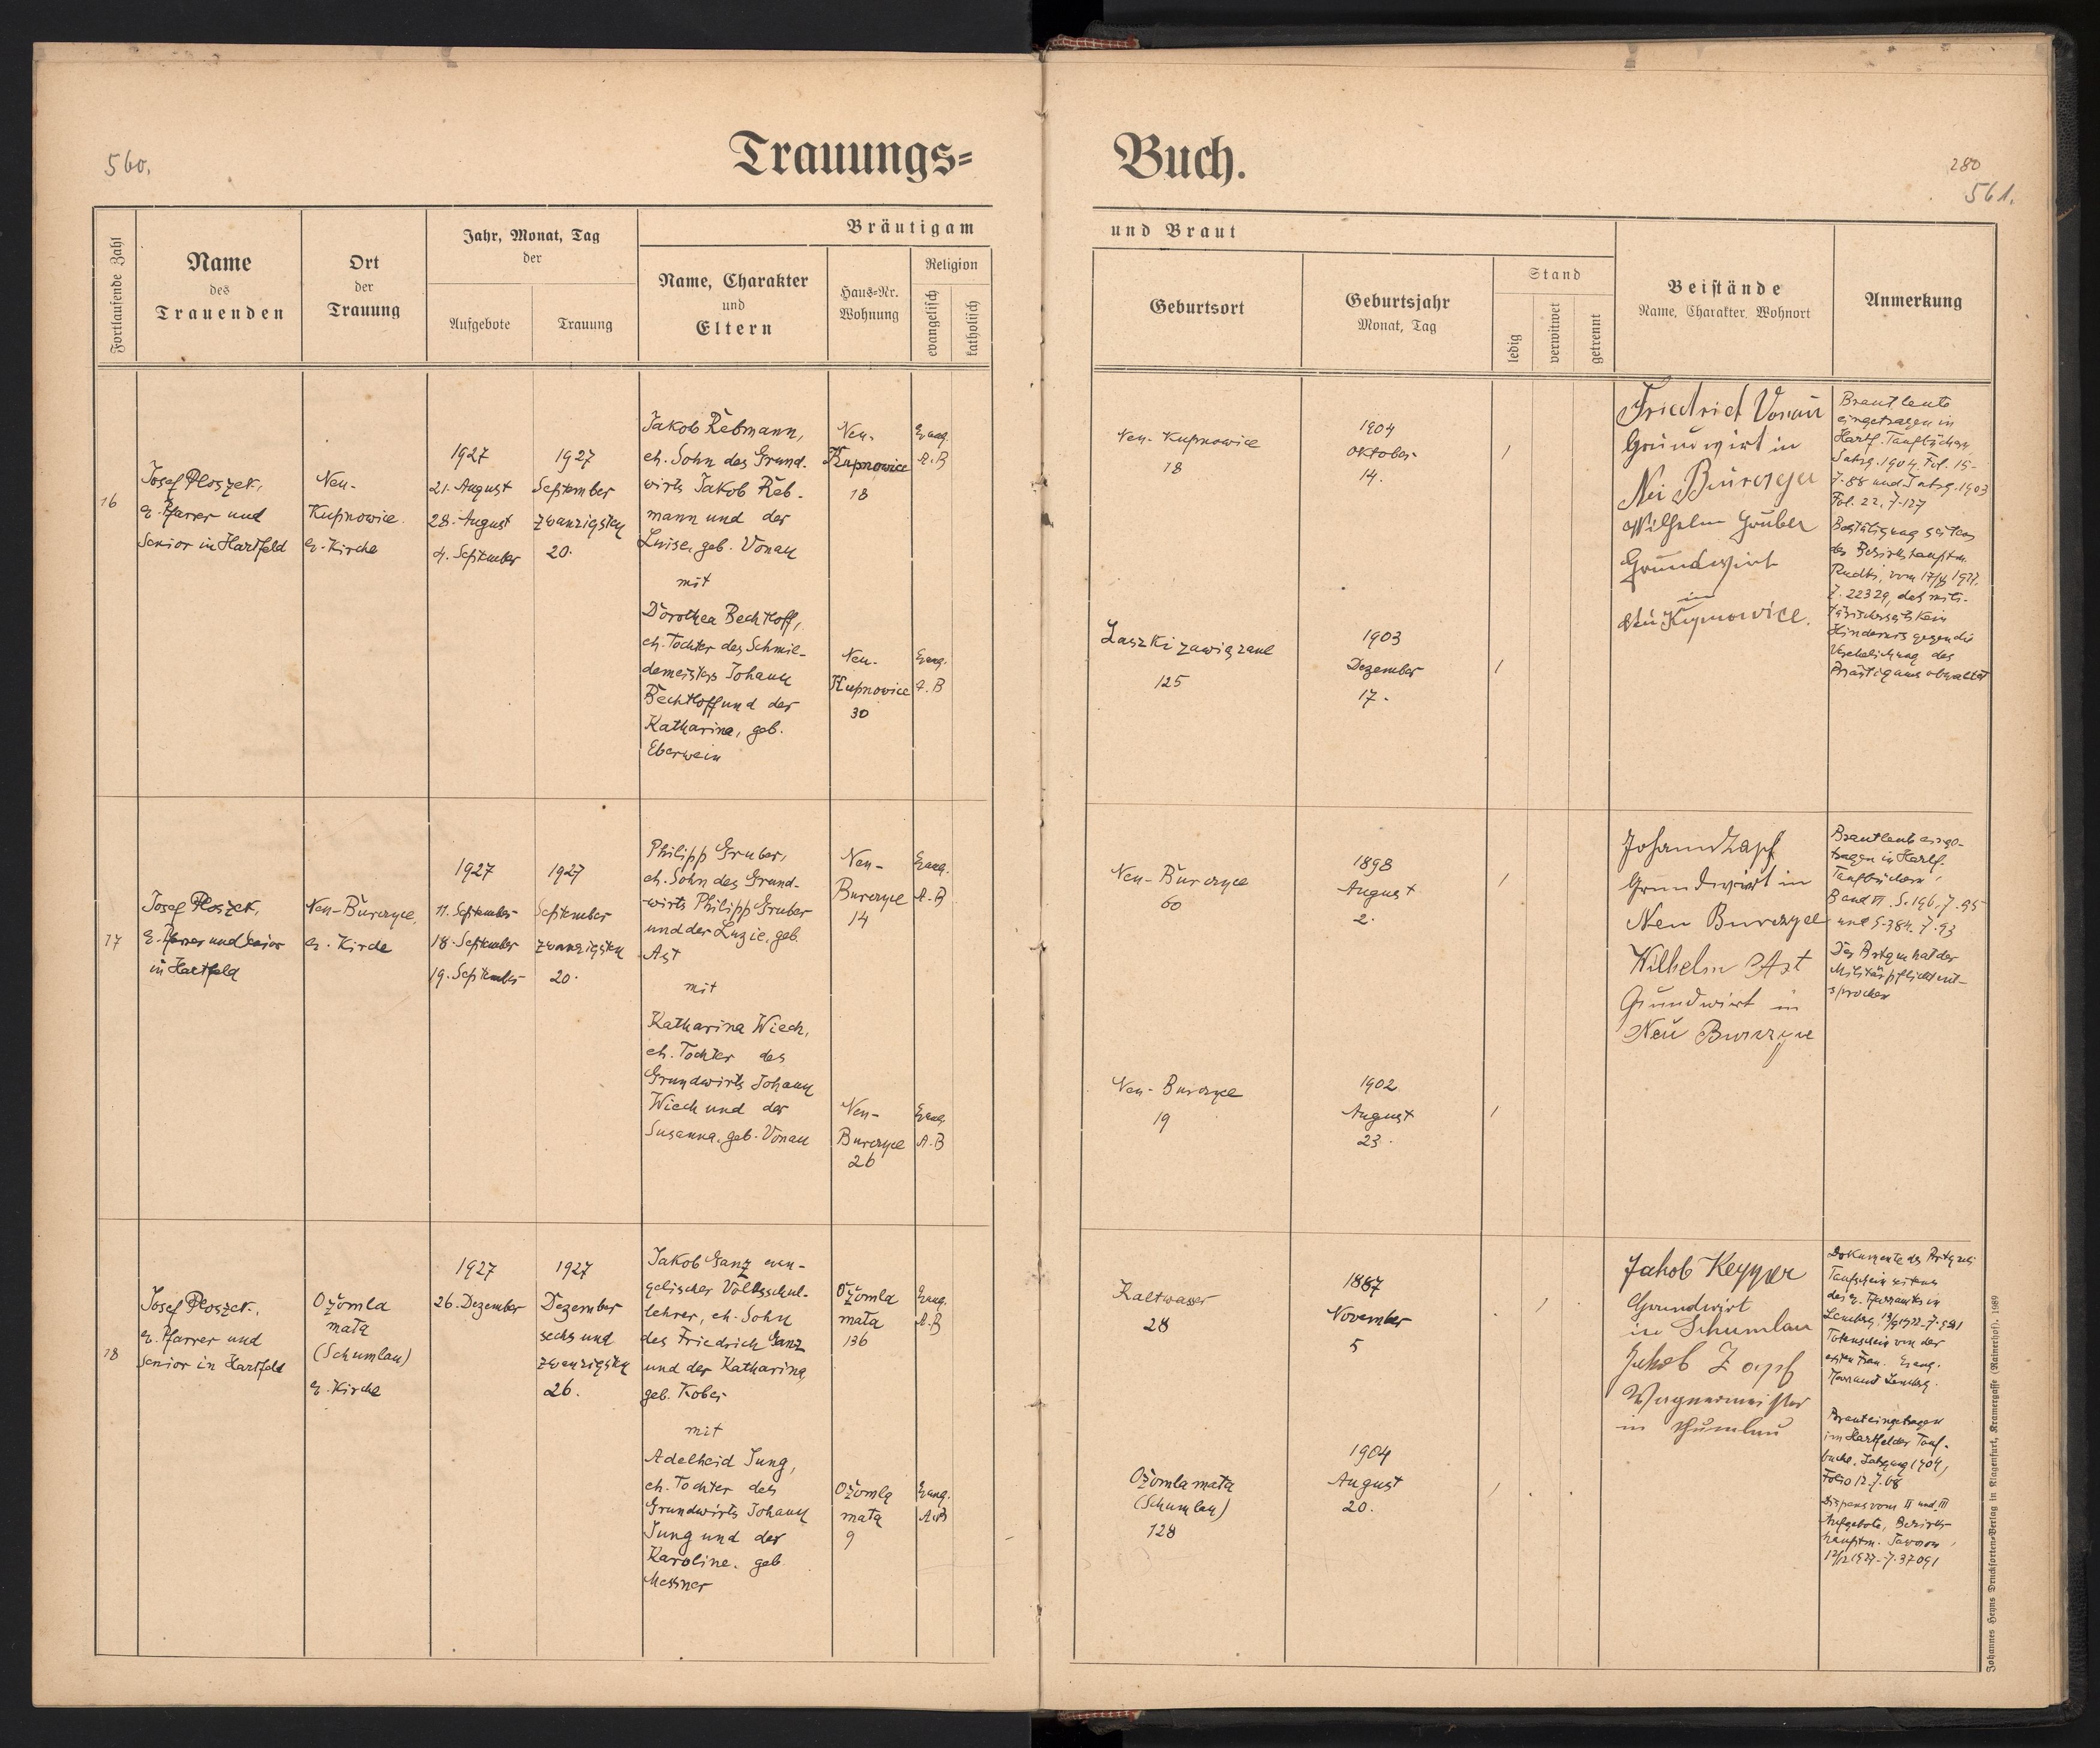 560.
Trauungs=
Buch.
280
561.
Fortlaufende Zahl
Name
des
Trauenden
Ort
der
Trauung
Jahr, Monat, Tag
der
Aufgebote
Trauung
Bräutigam
Name, Charakter
und
Eltern
Haus=Nr.
Wohnung
Religion
evangelisch
katholisch
und Braut
Geburtsort
Geburtsjahr
Monat, Tag
Stand
ledig
verwitwet
getrennt
Beistände
Name, Charakter, Wohnort
Anmerkung
16
Josef Ploszek,
e. Pfarrer und
Senior in Hartfeld
Neu-
Kupnowice
e. Kirche
1927
21. August
28. August
4. September
1927
September
zwanzigsten
20.
Jakob Rebmann,
eh. Sohn des Grund-
wirts Jakob Reb-
mann und der
Luise, geb. Vonau
mit
Dorothea Bechtloff,
eh. Tochter des Schmie-
demeisters Johann
Bechtloff und der
Katharina, geb.
Eberwein
Neu-
Kupnowice
18
Evang.
A. B
Neu-
Kupnowice
30
Evang.
A. B
Neu-Kupnowice
18
1904
Oktober
14.
Laszki zawiązane
125
1903
Dezember
17.
Friedrich Vonau
Grundwirt in
Neu Burczyce
Wilhelm Gruber
Grundwirt
in
Neu Kupnowice.
Brautleute
eingetragen in
Hartf. Taufbüchern,
Jahrg. 1904, Fol. 15-
Z. 88 und Jahrg. 1903
Fol. 22, Z. 127
Bestätigung seitens
der Bezirkshauptm.
Rudki, vom
Z. 22329, daß mili-
tärischerseits kein
Hindernis gegen die
Verehelichung des
Bräutigams obwaltet
17
Josef Ploszek,
e. Pfarrer und Senior
in Hartfeld
Neu-Burczyce,
e. Kirche
1927
11. September
18. September
19. September
1927
September
zwanzigsten
20.
Philipp Gruber,
eh. Sohn des Grund-
wirts Philipp Gruber
und der Luzie, geb.
Ast
mit
Katharina Wiech,
eh. Tochter des
Grundwirts Johann
Wiech und der
Susanna, geb. Vonau
Neu-
Burczyce
14
Evang.
A. B
Neu-
Burczyce
26
Evang.
A. B
Neu-Burczyce
60
1898
August
2.
Neu-Burczyce
19
1902
August
23.
Johann Zapf
Grundwirt in
Neu Burczyce
Wilhelm Ast
Grundwirt in
Neu Burczyce
Brautleute einge-
tragen in Hartf.
Taufbüchern,
Band III. S. 196, Z. 95
und S. 384. Z. 93
Der Brtgm hat der
Militärpflicht ent-
sprochen
18
Josef Ploszek,
e. Pfarrer und
Senior in Hartfeld
Ożomla
mała
(Schumlau)
e. Kirche
1927
26. Dezember
1927
Dezember
sechs und
zwanzigsten
26.
Jakob Ganz evan-
gelischer Volksschul-
lehrer, eh. Sohn
des Friedrich Ganz
und der Katharina,
geb. Kober
mit
Adelheid Jung,
eh. Tochter des
Grundwirts Johann
Jung und der
Karoline, geb.
Messner
Ożomla
mała
136
Evang.
A. B
Ożomla
mała
9
Evang.
A. B
Kaltwasser
28
1887
November
5
Ożomla mała
(Schumlau)
128
1904
August
20.
Jakob Kepper
Grundwirt
in Schumlau
Jakob Zapf
Wagnermeister
in Schumlau
Dokumente des
Taufschein seitens
des e. Pfarramts in
Lemberg,
Totenschein von der
ersten Frau. Evang.
Pfarramt Lemberg.
Braut eingetragen
im Hartfelder Tauf-
buche, Jahrgang 1904,
Folio 12. Z. 68
Dispens vom II und III
Aufgebote, Bezirks-
hauptm. Jaworow,
12/12 1927 - Z. 37091
Johannes Heyns Drucksorten=Verlag in Klagenfurt, Kramergasse (Rainerhof). 1989